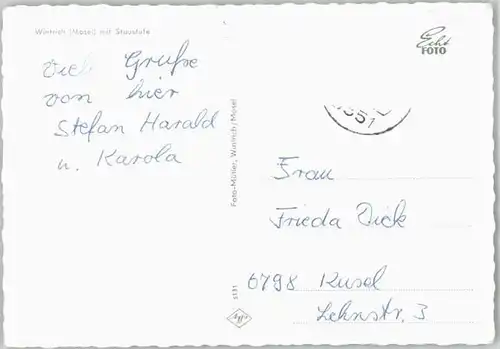 Wintrich (Mosel) mit Staustufe
Echt
FOTO
Viele Grüße
von hier
Stefan Harald
u. Karola
Foto-Müller, Wintrich/Mosel
5131
Agfa
Frau
Frieda Dick
6798 Kusel
Lehnstr. 3